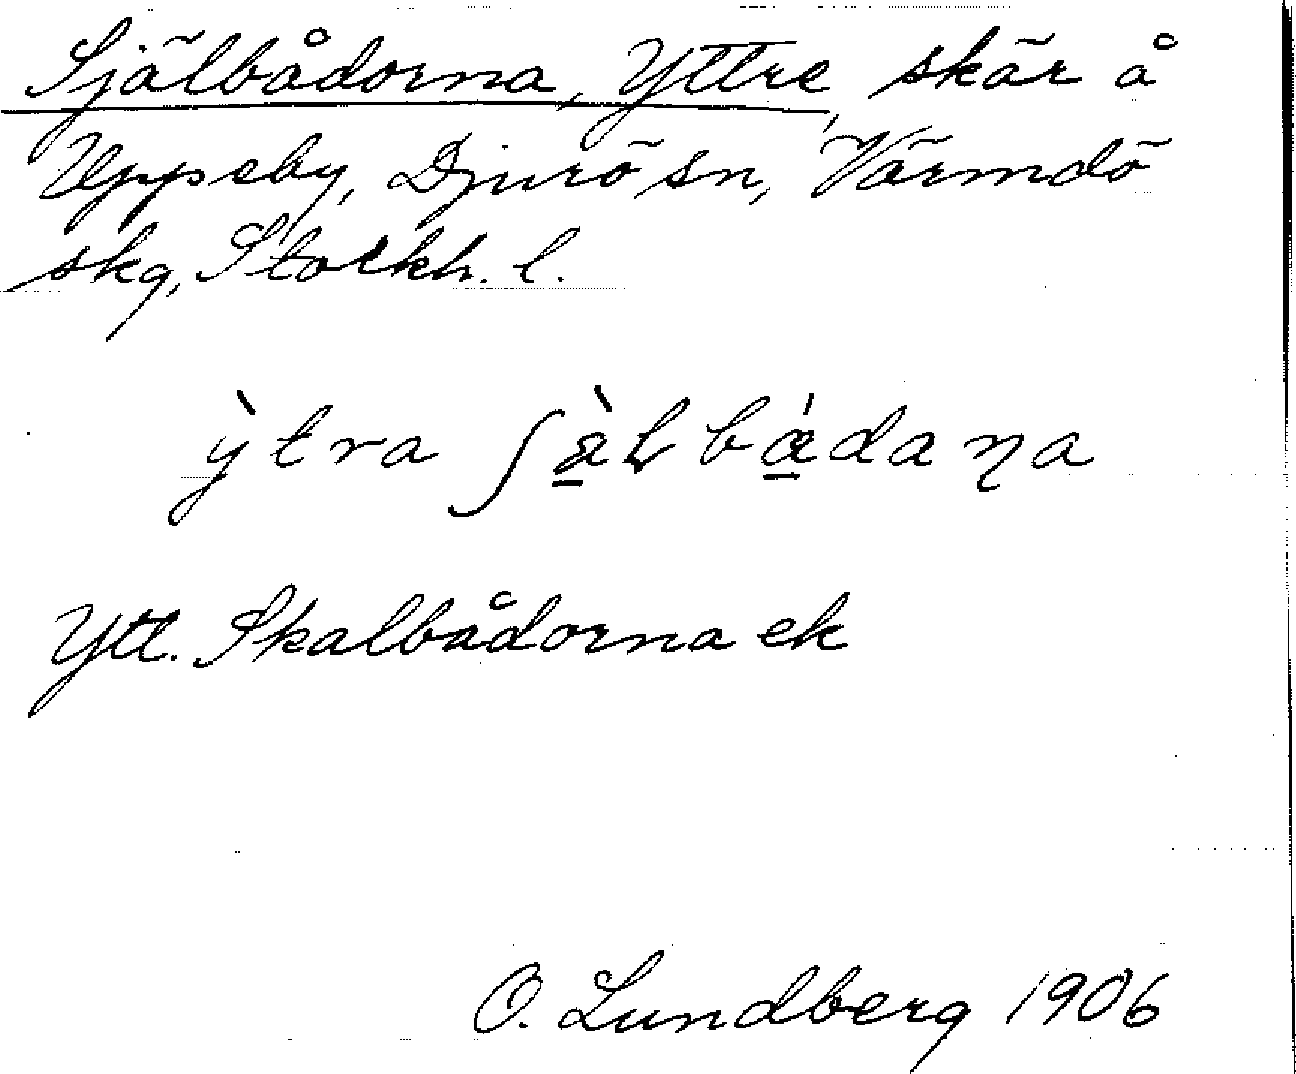 Själbådorna, Yttre, skär å
Uppeby, Djurö sn, Värmdö
skg, Stockh. l.
ỳtra ʃæ̠̀ɽbǽ̠daɳa
Ytt. Skalbådorna ek
O. Lundberg 1906